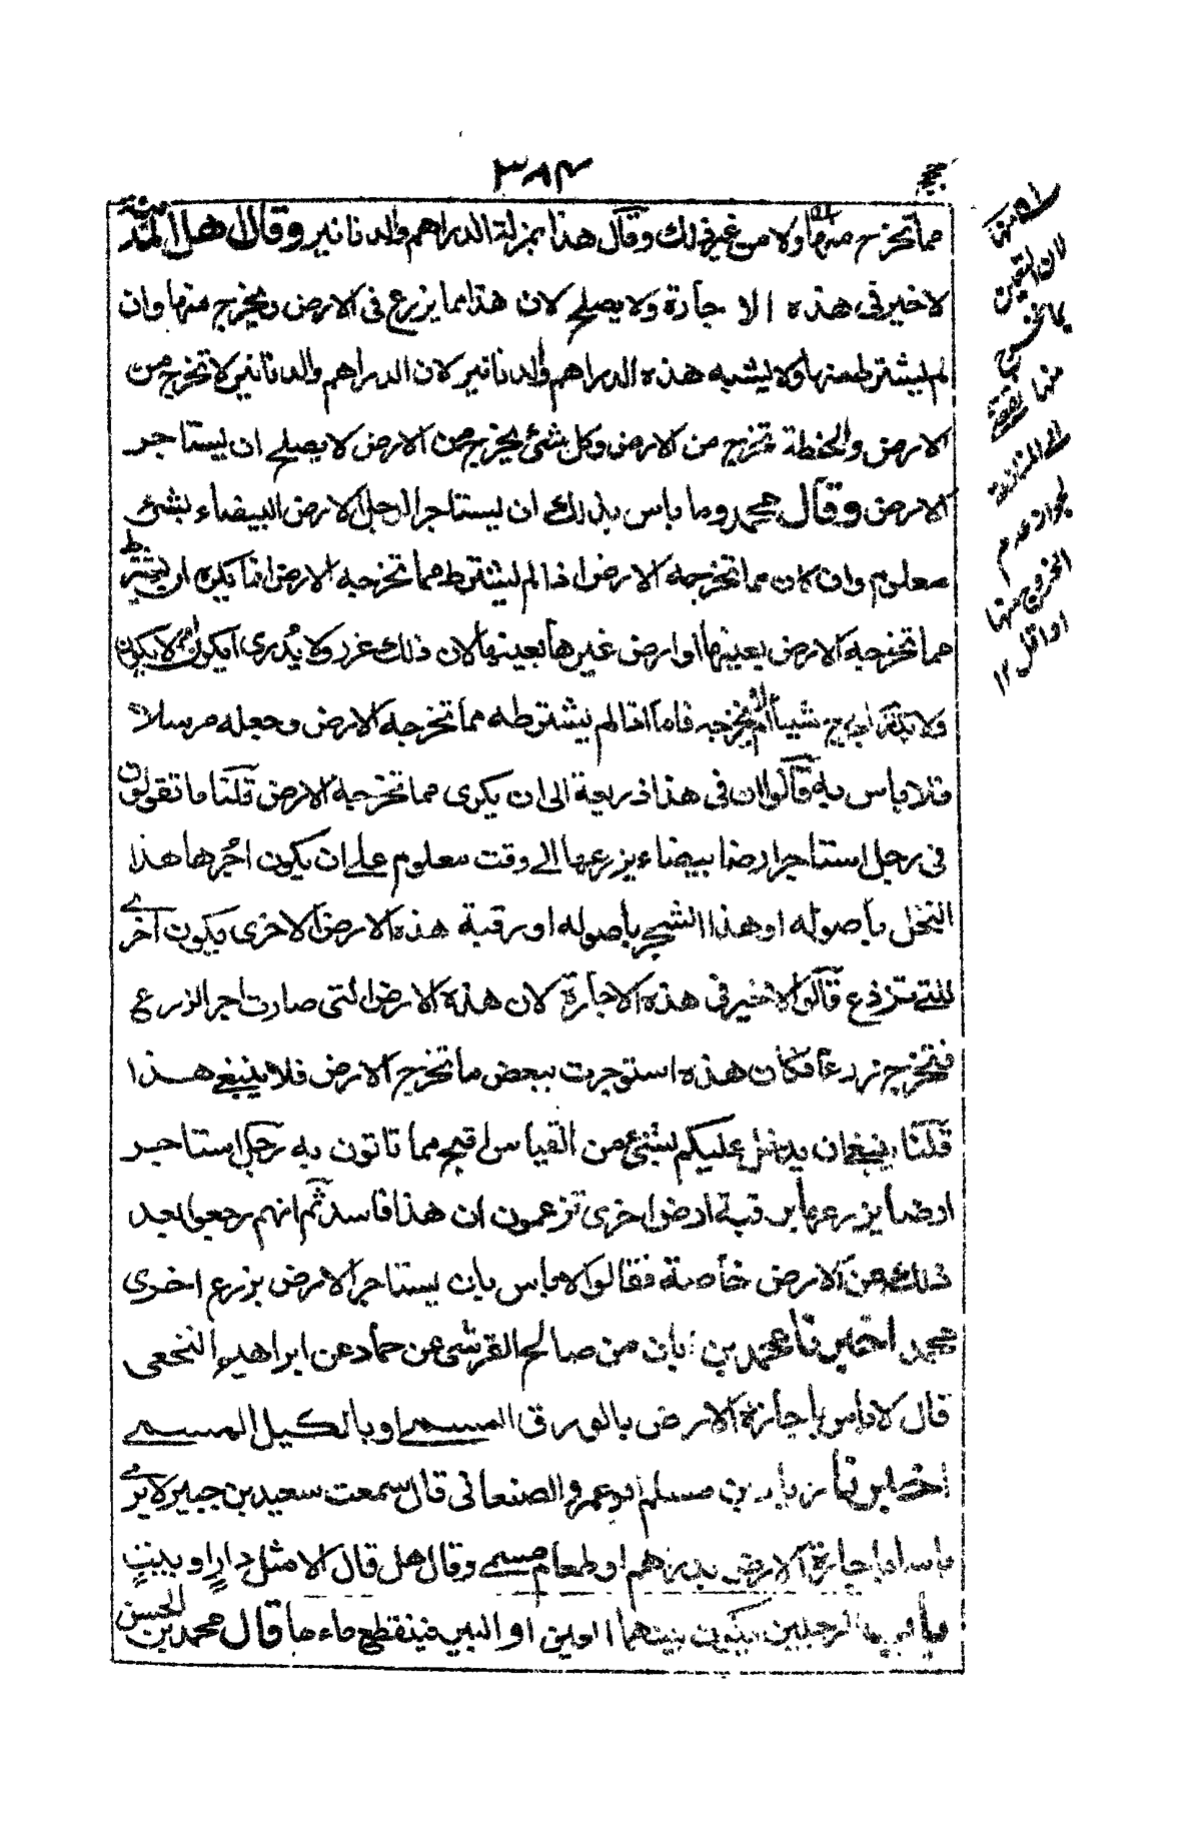 ٣٨٤
مما تخرج منها ولا من غير ذلك وقال هذا بمنزلة الدراهم والدنانير وقال اهل المدينة
لا خير فى هذه الاجارة ولا يصلح لان هذا مما يزرع فى الارض ويخرج منها وان
لم يشترط منها ولا يشبه هذه الدراهم والدنانير لان الدراهم والدنانير لا تخرج من
الارض والحنطة تخرج من الارض وكل شئ يخرج من الارض لا يصلح ان يستاجر
الارض وقال محمد وما باس بذلك ان يستاجر الرجل الارض البيضاء بشئ
معلوم وان كان مما تخرجه الارض اذا لم يشترط مما تخرجه الارض انما يكره ان يشترط
مما تخرجه الارض بعينها او ارض غيرها بعينها لان ذلك غرر ولا يدرى ايكون ام لا يكون
ولا شيأ ام لا تخرجه فاما اذا لم يشترطه مما تخرجه الارض وجعله مرسلا
فلا باس به قالوا ان فى هذا ذريعة الى ان يكرى مما تخرجه الارض قلنا ما تقولون
فى رجل استاجر ارضا بيضاء يزرعها الے وقت معلوم علے ان يكون اجرها هذا
النخل باصوله او هذا الشجر باصوله او رقبة هذه الارض الاخرى يكون اخرے
للتے تزرع قالوا لا خير فى هذه الاجارة لان هذه الارض التى صارت اجر الزرع
فتخرج زرعا فكان هذه استوجرت ببعض ما تخرج الارض فلا ينبغے هذا
قلنا ينبغے ان يدخل عليكم بشئ من القياس اقبح مما تاتون به رجل استاجر
ارضا يزرعها برقبة ارض اخرى تزعمون ان هذا فاسد ثم انهم رجعوا بعد
ذلك عن الارض خاصة فقالوا لا باس بان يستاجر الارض بزرع اخرى
محمد اخبرنا محمد بن ابان من صالح القرشى عن حماد عن ابراهيم النخعى
قال لا باس باجازة الارض بالورق المسمے او بالكيل المسمے
اخبرنا بن مسلم ابو عمر والصنعانى قال سمعت سعيد بن جبير لا يرے
باسا باجارة الارض بدرهم او طعام مسمے وقال هل قال الا مثل دار او بيت
باب الرجلين يكون بينهما العين او البير فينقطع ماءها قال محمد بن الحسن
لان التعين
بما تخرج
منها
لجواز عدم
الخروج منها
او اقل ١٢